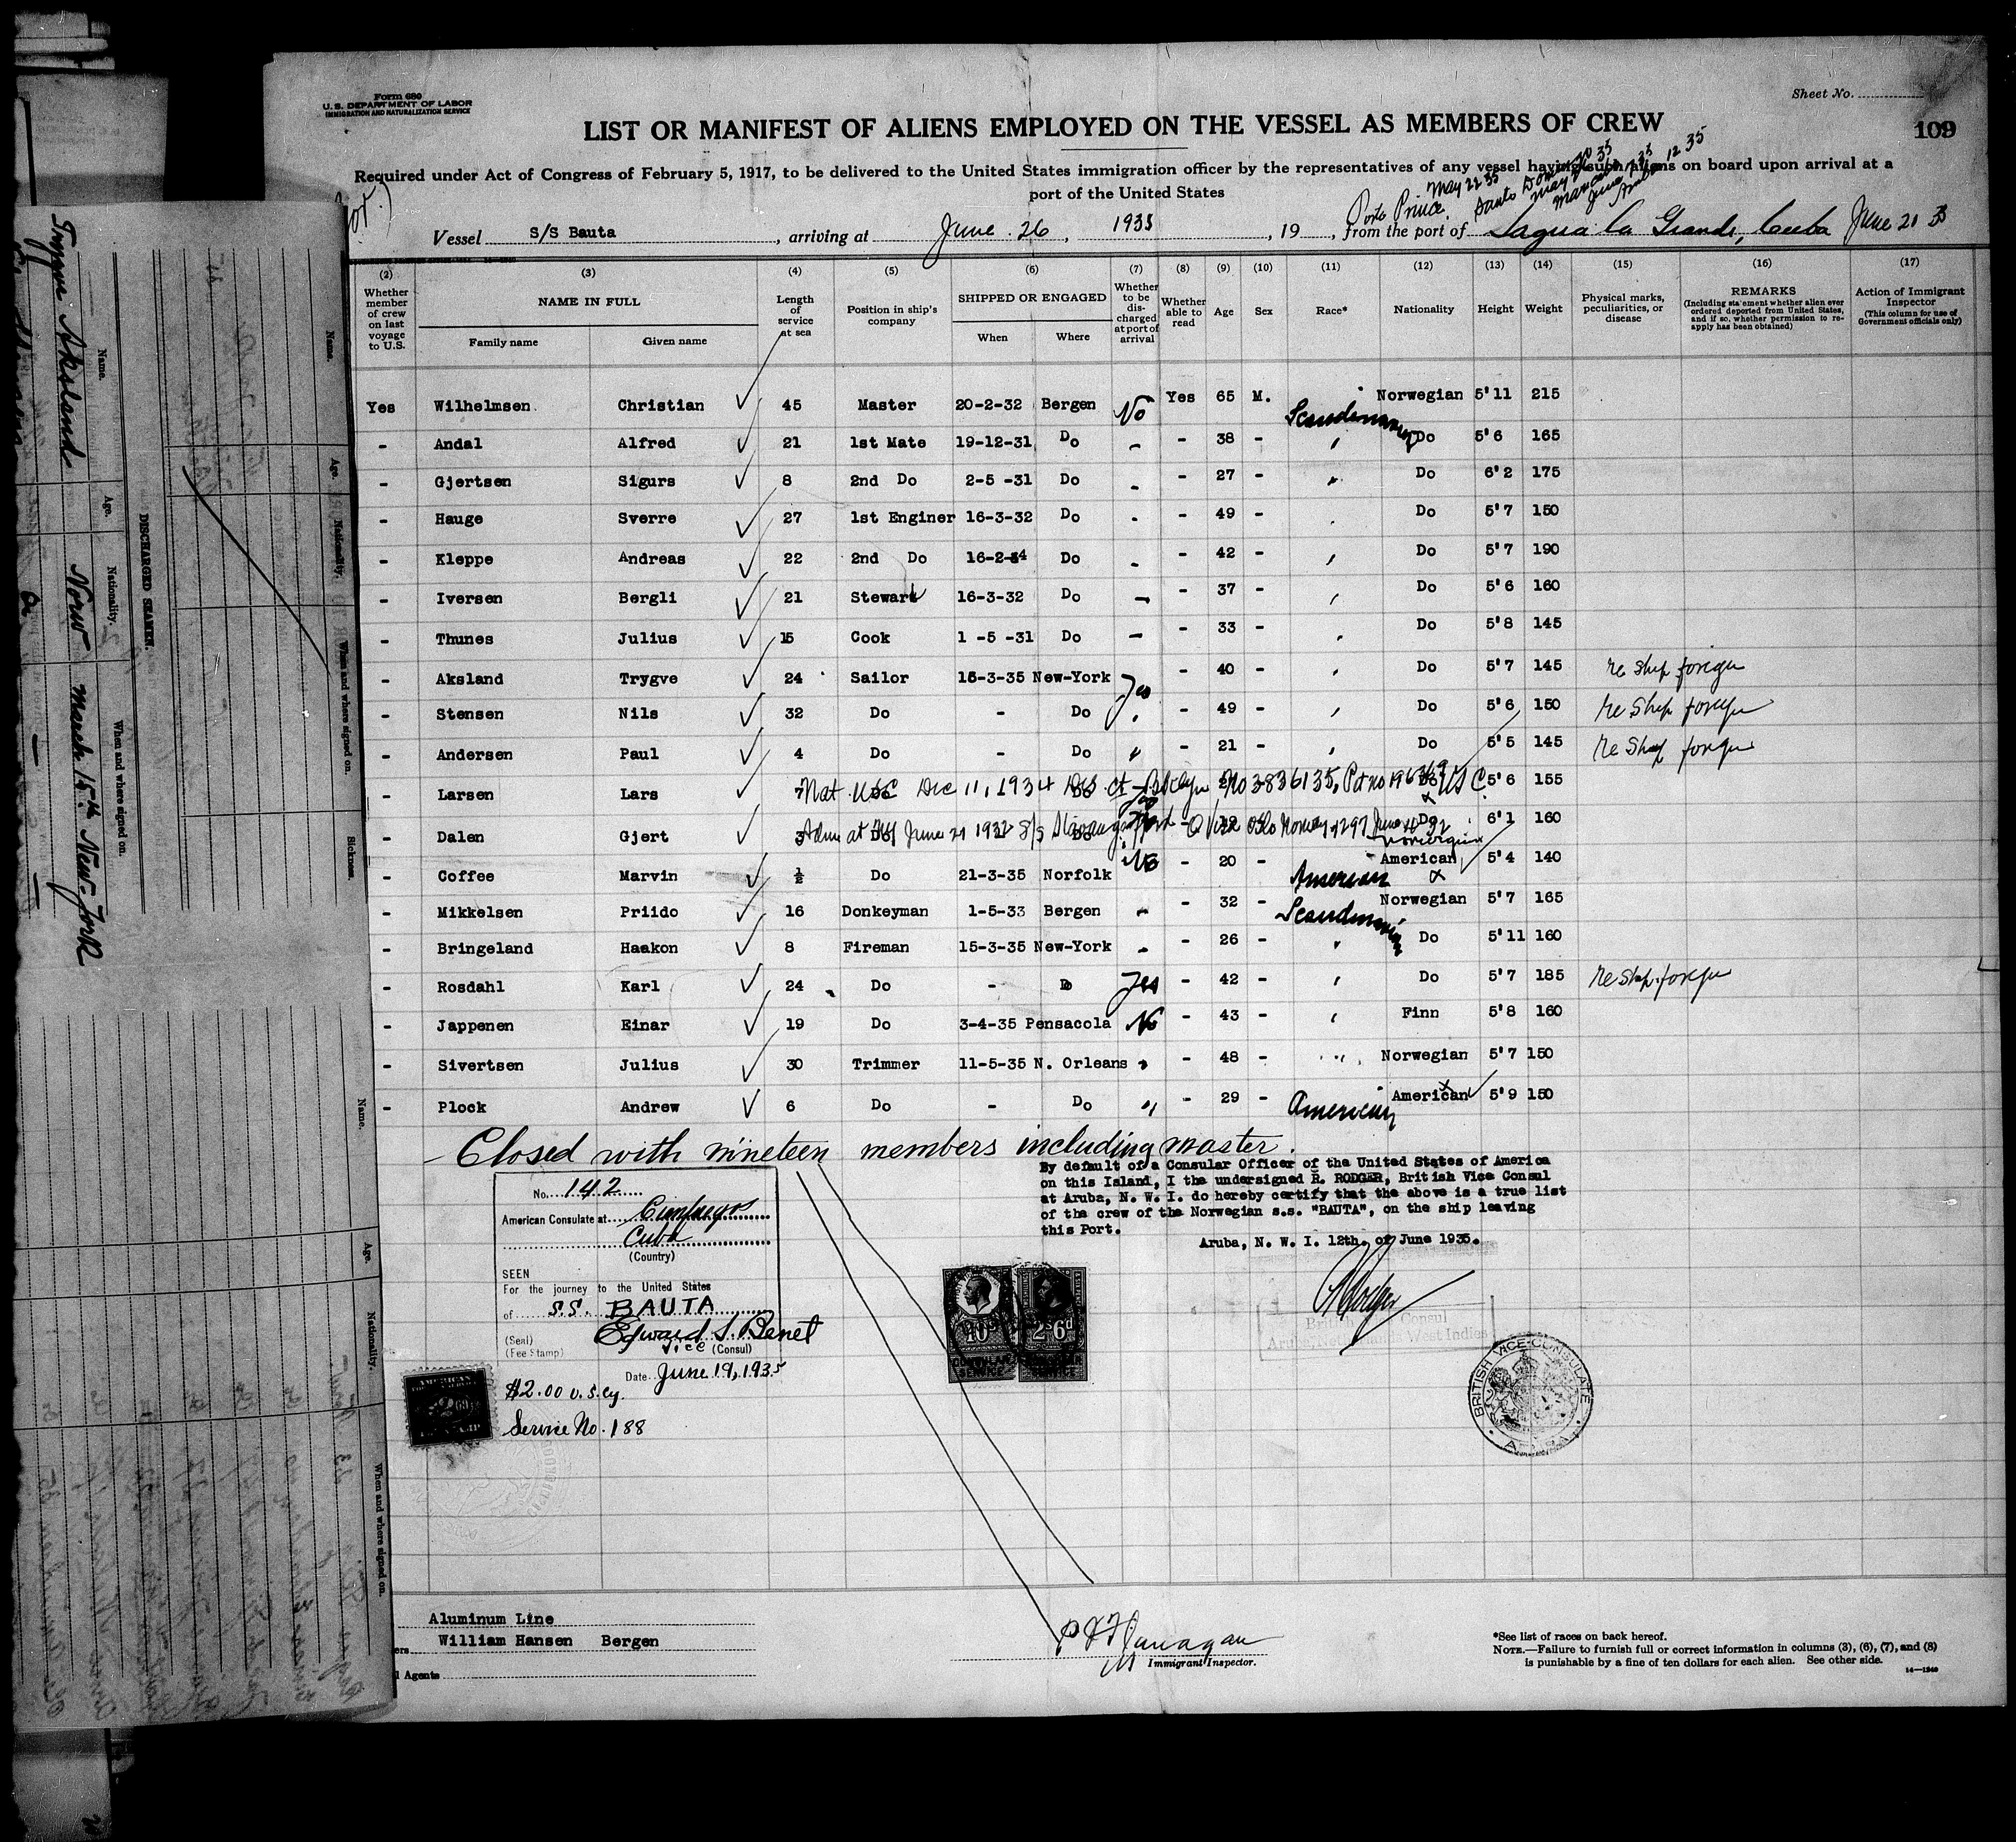 Form 680
U. S. DEPARTMENT OF LABOR
IMMIGRATION AND NATURALIZATION SERVICE
Sheet No.
109
LIST OR MANIFEST OF ALIENS EMPLOYED ON THE VESSEL AS MEMBERS OF CREW
Required under Act of Congress of February 5, 1917, to be delivered to the United States immigration officer by the representatives of any vessel having such aliens on board upon arrival at a
port of the United States
Porto Prince May 22 35
Vessel S/S Bauta, arriving at June 26, 1935, 19, from the port of Sagua la Grande, Cuba June 21 35
(2) (3) (4) (5) (6) (7) (8) (9) (10) (11) (12) (13) (14) (15) (16) (17)
Whether member of crew on last voyage to U.S. NAME IN FULL Family name Given name Length of service at sea Position in ship's company SHIPPED OR ENGAGED When Where Whether to be discharged at port of arrival Whether able to read Age Sex Race* Nationality Height Weight Physical marks, peculiarities, or disease REMARKS (Including statement whether alien ever ordered deported from United States, and if so, whether permission to reapply has been obtained) Action of Immigrant Inspector (This column for use of Government officials only)
Yes Wilhelmsen Christian 45 Master 20-2-32 Bergen No Yes 65 M. Scandinavian Norwegian 5'11 215
- Andal Alfred 21 1st Mate 19-12-31 Do - - 38 - " Do 5'6 165
- Gjertsen Sigurs 8 2nd Do 2-5 -31 Do - - 27 - " Do 6'2 175
- Hauge Sverre 27 1st Enginer 16-3-32 Do - - 49 - Do 5'7 150
- Kleppe Andreas 22 2nd Do 16-2-34 Do - - 42 - " Do 5'7 190
- Iversen Bergli 21 Steward 16-3-32 Do - - 37 - " Do 5'6 160
- Thunes Julius 15 Cook 1 -5 -31 Do - - 33 - " Do 5'8 145
- Aksland Trygve 24 Sailor 15-3-35 New-York Yes - 40 - " Do 5'7 145 re ship foreign
- Stensen Nils 32 Do - Do " - 49 - " Do 5'6 150 re ship foreign
- Andersen Paul 4 Do - Do " - 21 - " Do 5'5 145 re ship foreign
- Larsen Lars 7 Nat. USC Dec 11, 1934 No 3836135, USC 5'6 155
- Dalen Gjert 3 Adm at NY June 21 1932 S/S Stavangerfjord Oslo Norway Norwegian 6'1 160
- Coffee Marvin ½ Do 21-3-35 Norfolk No - 20 - American American 5'4 140
- Mikkelsen Priido 16 Donkeyman 1-5-33 Bergen - - 32 - Scandinavian Norwegian 5'7 165
- Bringeland Haakon 8 Fireman 15-3-35 New-York - - 26 - " Do 5'11 160
- Rosdahl Karl 24 Do - Do Yes - 42 - " Do 5'7 185 re ship foreign
- Jappenen Einar 19 Do 3-4-35 Pensacola No - 43 - " Finn 5'8 160
- Sivertsen Julius 30 Trimmer 11-5-35 N. Orleans " - 48 - " Norwegian 5'7 150
- Plock Andrew 6 Do - Do " - 29 - American American 5'9 150
- Closed with nineteen members including master.
By default of a Consular Officer of the United States of America
on this Island, I the undersigned R. RODGER, British Vice Consul
at Aruba, N. W. I. do hereby certify that the above is a true list
of the crew of the Norwegian s.s. "BAUTA", on the ship leaving
this Port.
Aruba, N. W. I. 12th. of June 1935.
R Rodger
No. 142
American Consulate at Cienfuegos
Cuba
(Country)
SEEN
For the journey to the United States
of S.S. BAUTA
Edward S. Benet
(Seal) Vice (Consul)
(Fee Stamp)
Date June 19, 1935
$2.00 U.S. Cy.
Service No. 188
CONSULAR SERVICE
2/6d
BRITISH VICE-CONSULATE
ARUBA
Aluminum Line
William Hansen Bergen
Agents
Immigrant Inspector.
*See list of races on back hereof.
NOTE.—Failure to furnish full or correct information in columns (3), (6), (7), and (8)
is punishable by a fine of ten dollars for each alien. See other side.
14-1240
DISCHARGED SEAMEN.
Name. Age. Nationality. When and where signed on.
Trygve Aksland Norw March 15th New-York
Name. Age. Nationality. When and where signed on. Sickness.
Name. Age. Nationality. When and where signed on.